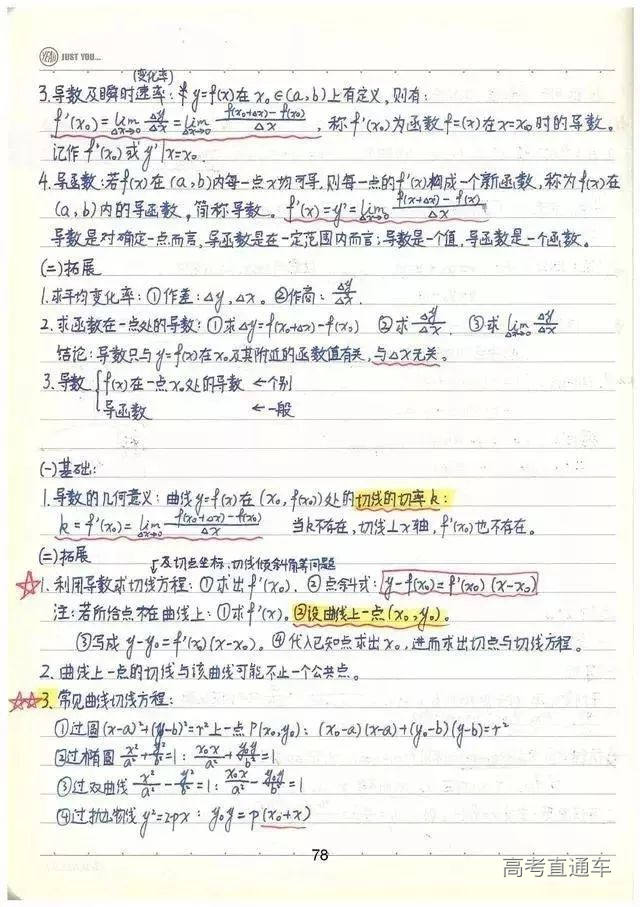 YEAH JUST YOU...
(变化率)
3.导数及瞬时速率:若y=f(x)在x₀∈(a,b)上有定义,则有:
f'(x₀)=lim Δx→0 Δy/Δx=lim Δx→0 (f(x₀+Δx)-f(x₀))/Δx,称f'(x₀)为函数f=(x)在x=x₀时的导数。
记作f'(x₀)或y'|x=x₀.
4.导函数:若f(x)在(a,b)内每一点x均可导,则每一点的f'(x)构成一个新函数,称为f(x)在
(a,b)内的导函数,简称导数。f'(x)=y'=lim Δx→0 (f(x+Δx)-f(x))/Δx
导数是对确定一点而言,导函数是在一定范围内而言;导数是一个值,导函数是一个函数。
(二)拓展
1.求平均变化率:①作差:Δy,Δx。②作商:Δy/Δx.
2.求函数在一点处的导数:①求Δy=f(x₀+Δx)-f(x₀) ②求Δy/Δx. ③求lim Δx→0 Δy/Δx
结论:导数只与y=f(x)在x₀及其附近的函数值有关,与Δx无关。
3.导数{f(x)在一点x₀处的导数 ←个别
导函数 ←一般
(一)基础:
1.导数的几何意义:曲线y=f(x)在(x₀,f(x₀))处的切线的切率k:
k=f'(x₀)=lim Δx→0 (f(x₀+Δx)-f(x₀))/Δx 当k不存在,切线⊥x轴,f'(x₀)也不存在。
(二)拓展
及切点坐标、切线倾斜角等问题
☆1.利用导数求切线方程:①求出f'(x₀).②点斜式:y-f(x₀)=f'(x₀)(x-x₀)
注:若所给点不在曲线上:①求f'(x)。②设曲线上一点(x₀,y₀)。
③写成y-y₀=f'(x₀)(x-x₀)。④代入已知点求出x₀,进而求出切点与切线方程。
2.曲线上一点的切线与该曲线可能不止一个公共点。
☆☆3.常见曲线切线方程:
①过圆(x-a)²+(y-b)²=r²上一点P(x₀,y₀):(x₀-a)(x-a)+(y₀-b)(y-b)=r²
②过椭圆x²/a²+y²/b²=1:x₀x/a²+y₀y/b²=1
③过双曲线x²/a²-y²/b²=1:x₀x/a²-y₀y/b²=1
④过抛物线y²=2px:y₀y=p(x₀+x)
78
高考直通车